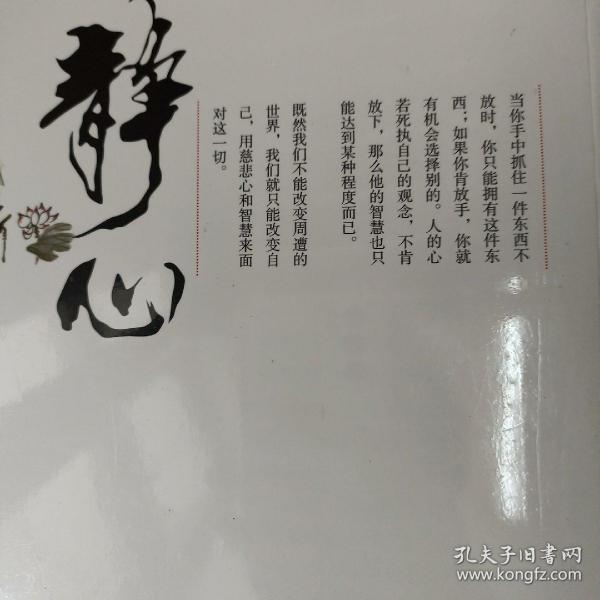 当你手中抓住一件东西不
放时，你只能拥有这件东
西；如果你肯放手，你就
有机会选择别的。人的心
若死执自己的观念，不肯
放下，那么他的智慧也只
能达到某种程度而已。
既然我们不能改变周遭的
世界，我们就只能改变自
己，用慈悲心和智慧来面
对这一切。
静心
孔夫子旧书网
www.kongfz.com